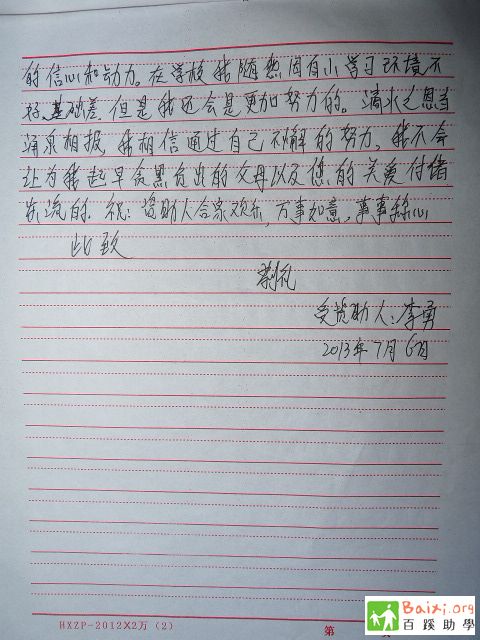 的信心和动力。在学校我随然因有小学习环境不
好、基础差,但是我还会是更加努力的。滴水之恩当
涌泉相报,我相信通过自己不懈的努力,我不会
让为我起早贪黑付出的父母以及您的关爱付诸
东流的。祝:资助人合家欢乐,万事如意,事事称心
此致
敬礼
受资助人:李勇
2013年7月6日
HXZP-2012X2万(2)
第
Baixi.org
百蹊助學